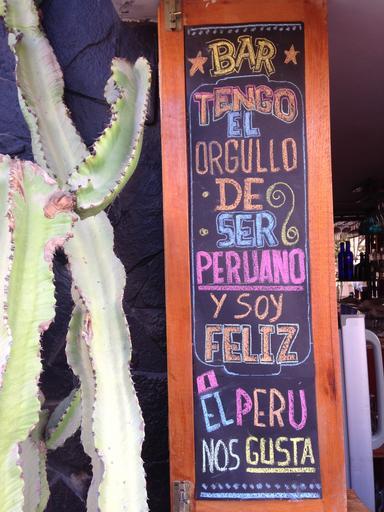 BAR
TENGO
EL
ORGULLO
DE
SER
PERUANO
Y SOY
FELIZ
EL PERU
NOS GUSTA